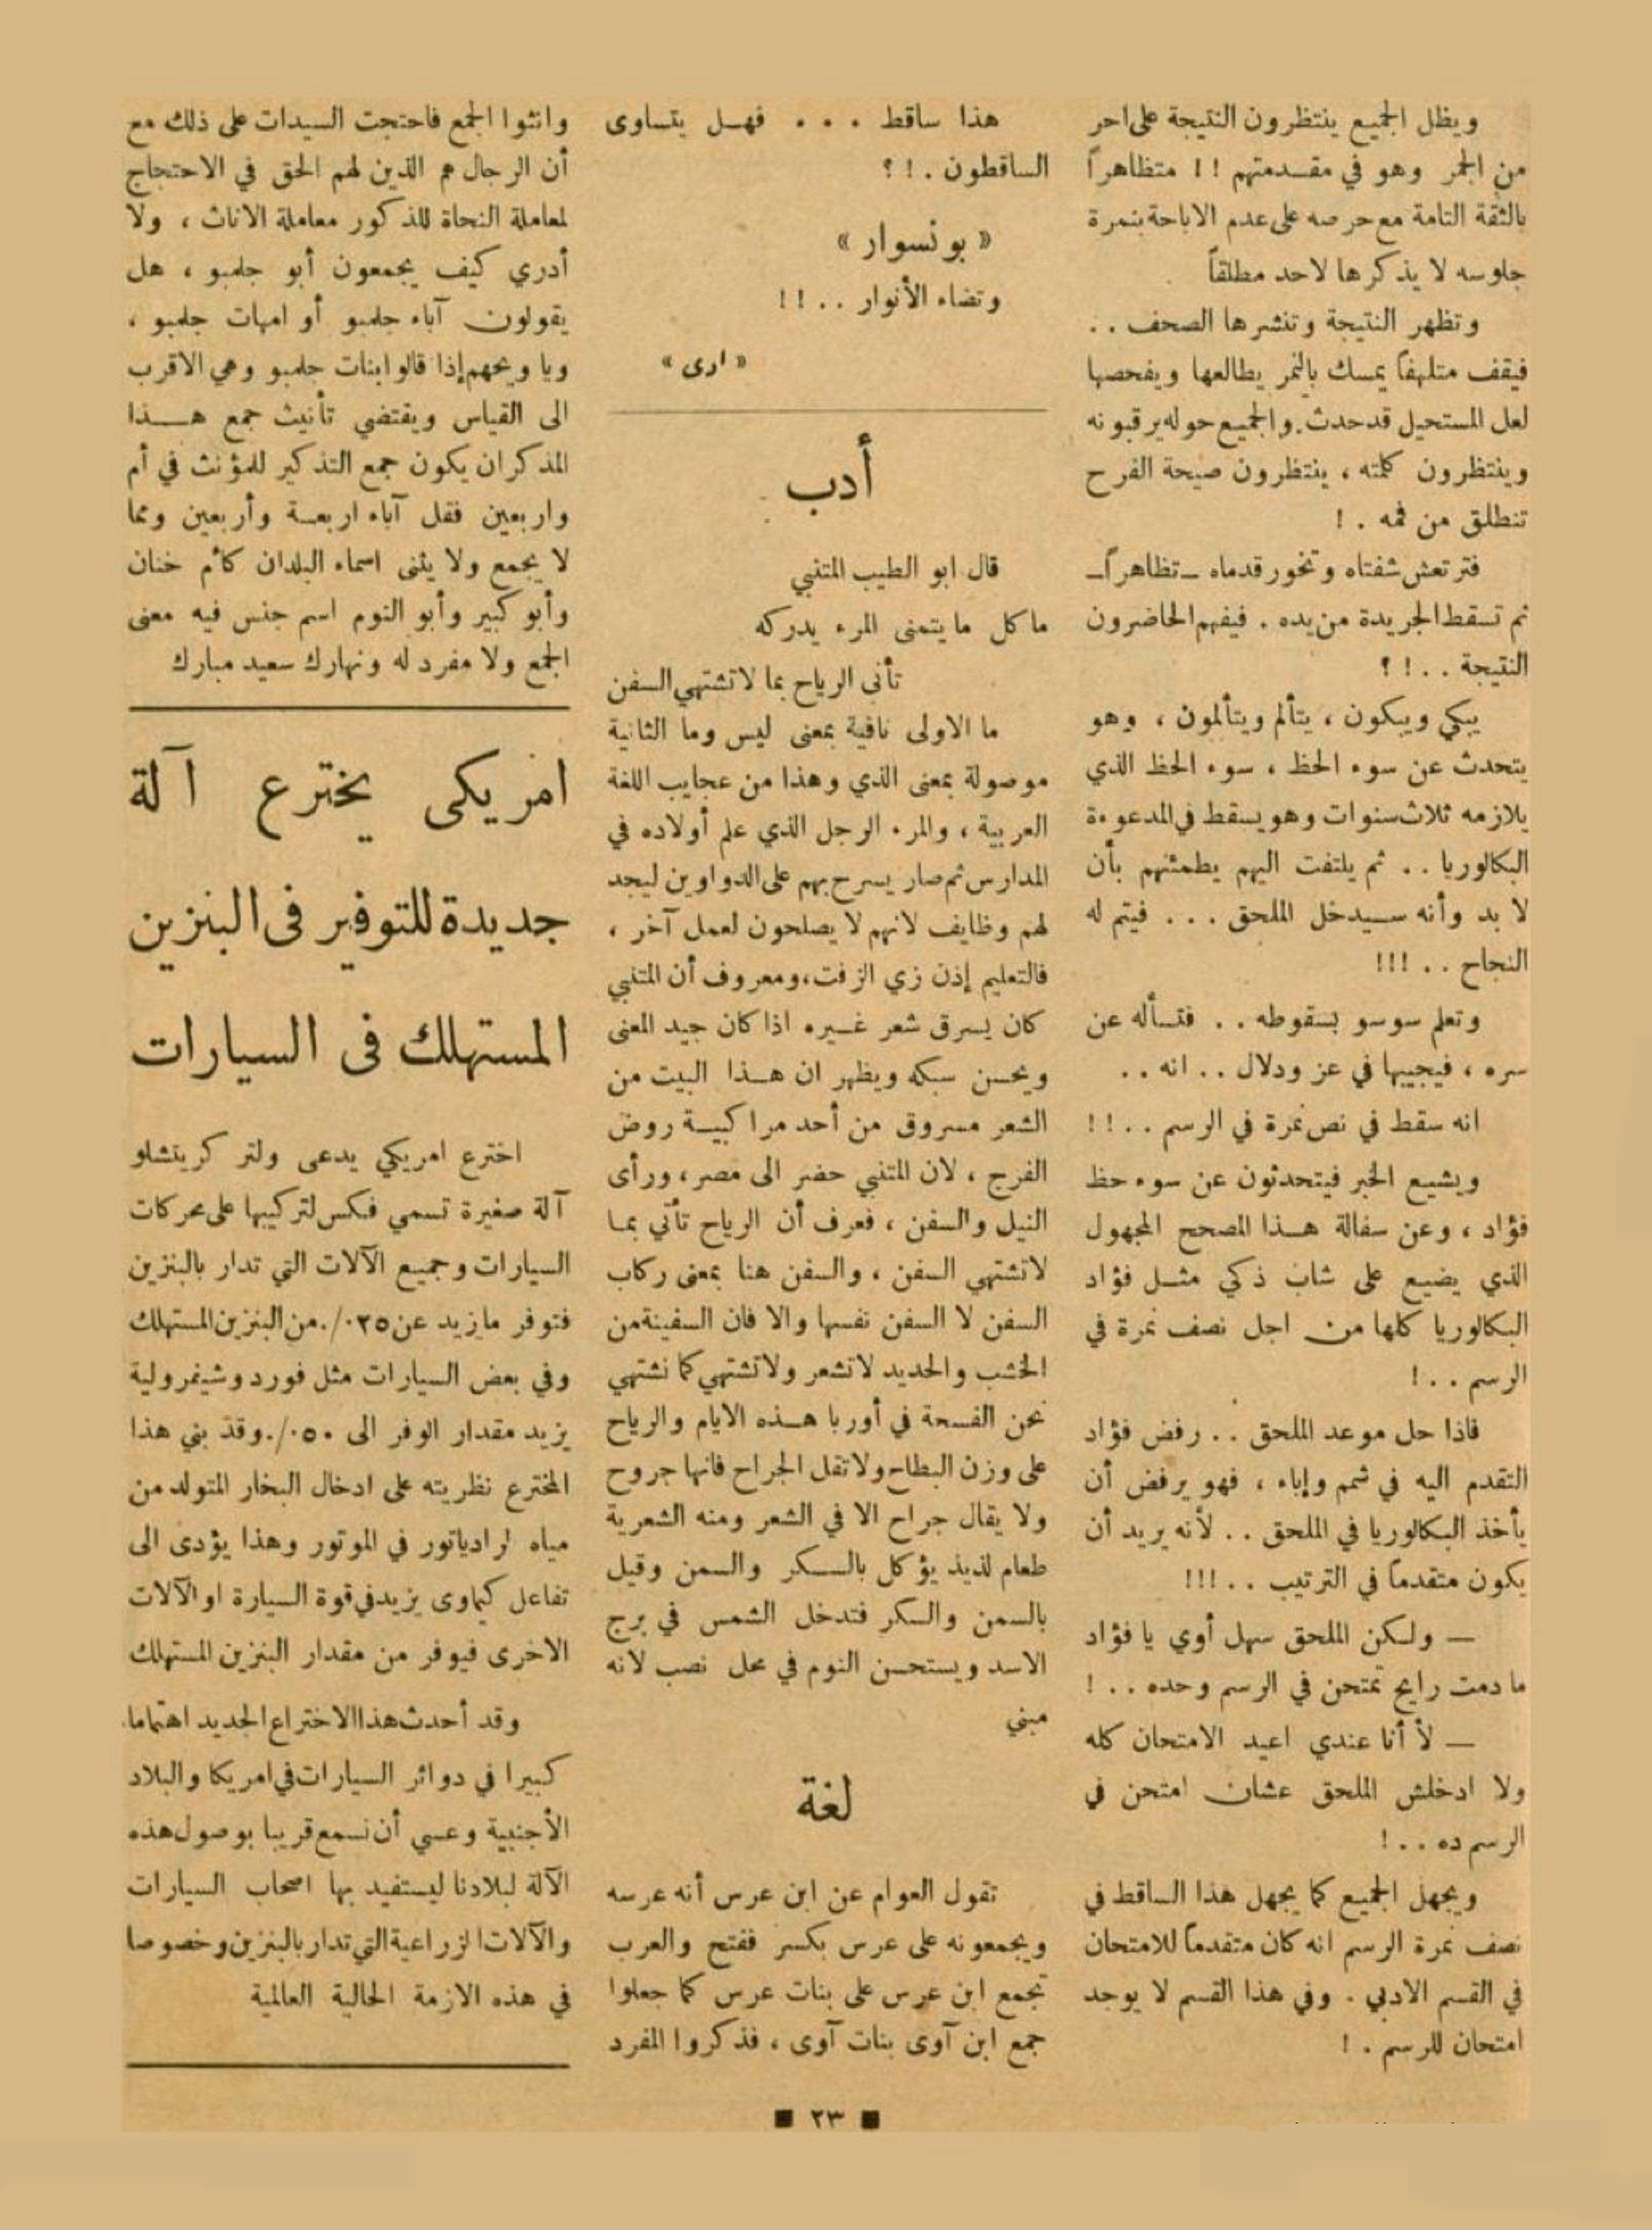 ويظل الجميع ينتظرون النتيجة على احر
من الجمر وهو في مقدمتهم !! متظاهراً
بالثقة التامة مع حرصه على عدم الاباحة بنمرة
جلوسه لا يذكرها لاحد مطلقاً
وتظهر النتيجة وتنشرها الصحف . .
فيقف متلهفاً يمسك بالنمر يطالعها ويفحصها
لعل المستحيل قد حدث . والجميع حوله يرقبونه
وينتظرون كلمته ، ينتظرون صيحة الفرح
تنطلق من فمه . !
فترتعش شفتاه وتخور قدماه ـ تظاهراً ـ
ثم تسقط الجريدة من يده . فيفهم الحاضرون
النتيجة . . ! ؟
يبكي ويبكون ، يتألم ويتألمون ، وهو
يتحدث عن سوء الحظ ، سوء الحظ الذي
يلازمه ثلاث سنوات وهو يسقط في المدعوءة
البكالوريا . . ثم يلتفت اليهم يطمئنهم بأن
لا بد وأنه سيدخل الملحق . . . فيتم له
النجاح . . !!!
وتعلم سوسو بسقوطه . . فتسأله عن
سره ، فيجيبها في عز ودلال . . انه . .
انه سقط في نص نمرة في الرسم . . !!
ويشيع الخبر فيتحدثون عن سوء حظ
فؤاد ، وعن سفالة هذا المصحح المجهول
الذي يضيع على شاب ذكي مثل فؤاد
البكالوريا كلها من اجل نصف نمرة في
الرسم . . !
فاذا حل موعد الملحق . . رفض فؤاد
التقدم اليه في شمم وإباء ، فهو يرفض أن
يأخذ البكالوريا في الملحق . . لأنه يريد أن
يكون متقدماً في الترتيب . . !!!
— ولكن الملحق سهل أوي يا فؤاد
ما دمت رايح تمتحن في الرسم وحده . . !
— لأ أنا عندي اعيد الامتحان كله
ولا ادخلش الملحق عشان امتحن في
الرسم ده . . !
ويجهل الجميع كما يجهل هذا الساقط في
نصف نمرة الرسم انه كان متقدماً للامتحان
في القسم الادبي . وفي هذا القسم لا يوجد
امتحان للرسم . !
هذا ساقط . . . فهل يتساوى
الساقطون . ! ؟
« بونسوار »
وتضاء الأنوار . . !!
« ارى »
أدب
قال ابو الطيب المتنبي
ما كل ما يتمنى المرء يدركه
تأتي الرياح بما لا تشتهي السفن
ما الاولى نافية بمعنى ليس وما الثانية
موصولة بمعنى الذي وهذا من عجايب اللغة
العربية ، والمرء الرجل الذي علم أولاده في
المدارس ثم صار يسرح بهم على الدواوين ليجد
لهم وظايف لانهم لا يصلحون لعمل آخر ،
فالتعليم إذن زي الزفت، ومعروف أن المتنبي
كان يسرق شعر غيره اذا كان جيد المعنى
ويحسن سبكه ويظهر ان هذا البيت من
الشعر مسروق من أحد مراكبية روض
الفرج ، لان المتنبي حضر الى مصر، ورأى
النيل والسفن ، فعرف أن الرياح تأتي بما
لا تشتهي السفن ، والسفن هنا بمعنى ركاب
السفن لا السفن نفسها والا فان السفينة من
الخشب والحديد لا تشعر ولا تشتهي كما نشتهي
نحن الفسحة في أوربا هذه الايام والرياح
على وزن البطاح ولا تقل الجراح فانها جروح
ولا يقال جراح الا في الشعر ومنه الشعرية
طعام لذيذ يؤكل بالسكر والسمن وقيل
بالسمن والسكر فتدخل الشمس في برج
الاسد ويستحسن النوم في محل نصب لانه
مبني
لغة
تقول العوام عن ابن عرس أنه عرسه
ويجمعونه على عرس بكسر ففتح والعرب
تجمع ابن عرس على بنات عرس كما جعلوا
جمع ابن آوى بنات آوى ، فذكروا المفرد
وانثوا الجمع فاحتجت السيدات على ذلك مع
أن الرجال هم الذين لهم الحق في الاحتجاج
لمعاملة النحاة للذكور معاملة الاناث ، ولا
أدري كيف يجمعون أبو جلمبو ، هل
يقولون آباء جلمبو أو امهات جلمبو ،
ويا ويحهم إذا قالوا بنات جلمبو وهي الاقرب
الى القياس ويقتضي تأنيث جمع هذا
المذكر ان يكون جمع التذكير للمؤنث في أم
واربعين فقل آباء اربعة وأربعين ومما
لا يجمع ولا يثنى اسماء البلدان كأم خنان
وأبو كبير وأبو النوم اسم جنس فيه معنى
الجمع ولا مفرد له ونهارك سعيد مبارك
امريكى يخترع آلة
جديدة للتوفير فى البنزين
المستهلك فى السيارات
اخترع امريكي يدعى ولتر كريتشلو
آلة صغيرة تسمي فكس لتركيبها على محركات
السيارات وجميع الآلات التي تدار بالبنزين
فتوفر ما يزيد عن ٢٥ ٠/٠ من البنزين المستهلك
وفي بعض السيارات مثل فورد وشيفرولية
يزيد مقدار الوفر الى ٥٠ ٠/٠ وقد بني هذا
المخترع نظريته على ادخال البخار المتولد من
مياه الرادياتور في الموتور وهذا يؤدى الى
تفاعل كيماوى يزيد في قوة السيارة او الآلات
الاخرى فيوفر من مقدار البنزين المستهلك
وقد أحدث هذا الاختراع الجديد اهتماما
كبيرا في دوائر السيارات في امريكا والبلاد
الأجنبية وعسي أن نسمع قريبا بوصول هذه
الآلة لبلادنا ليستفيد بها اصحاب السيارات
والآلات الزراعية التي تدار بالبنزين وخصوصا
في هذه الازمة الحالية العالمية
٢٣